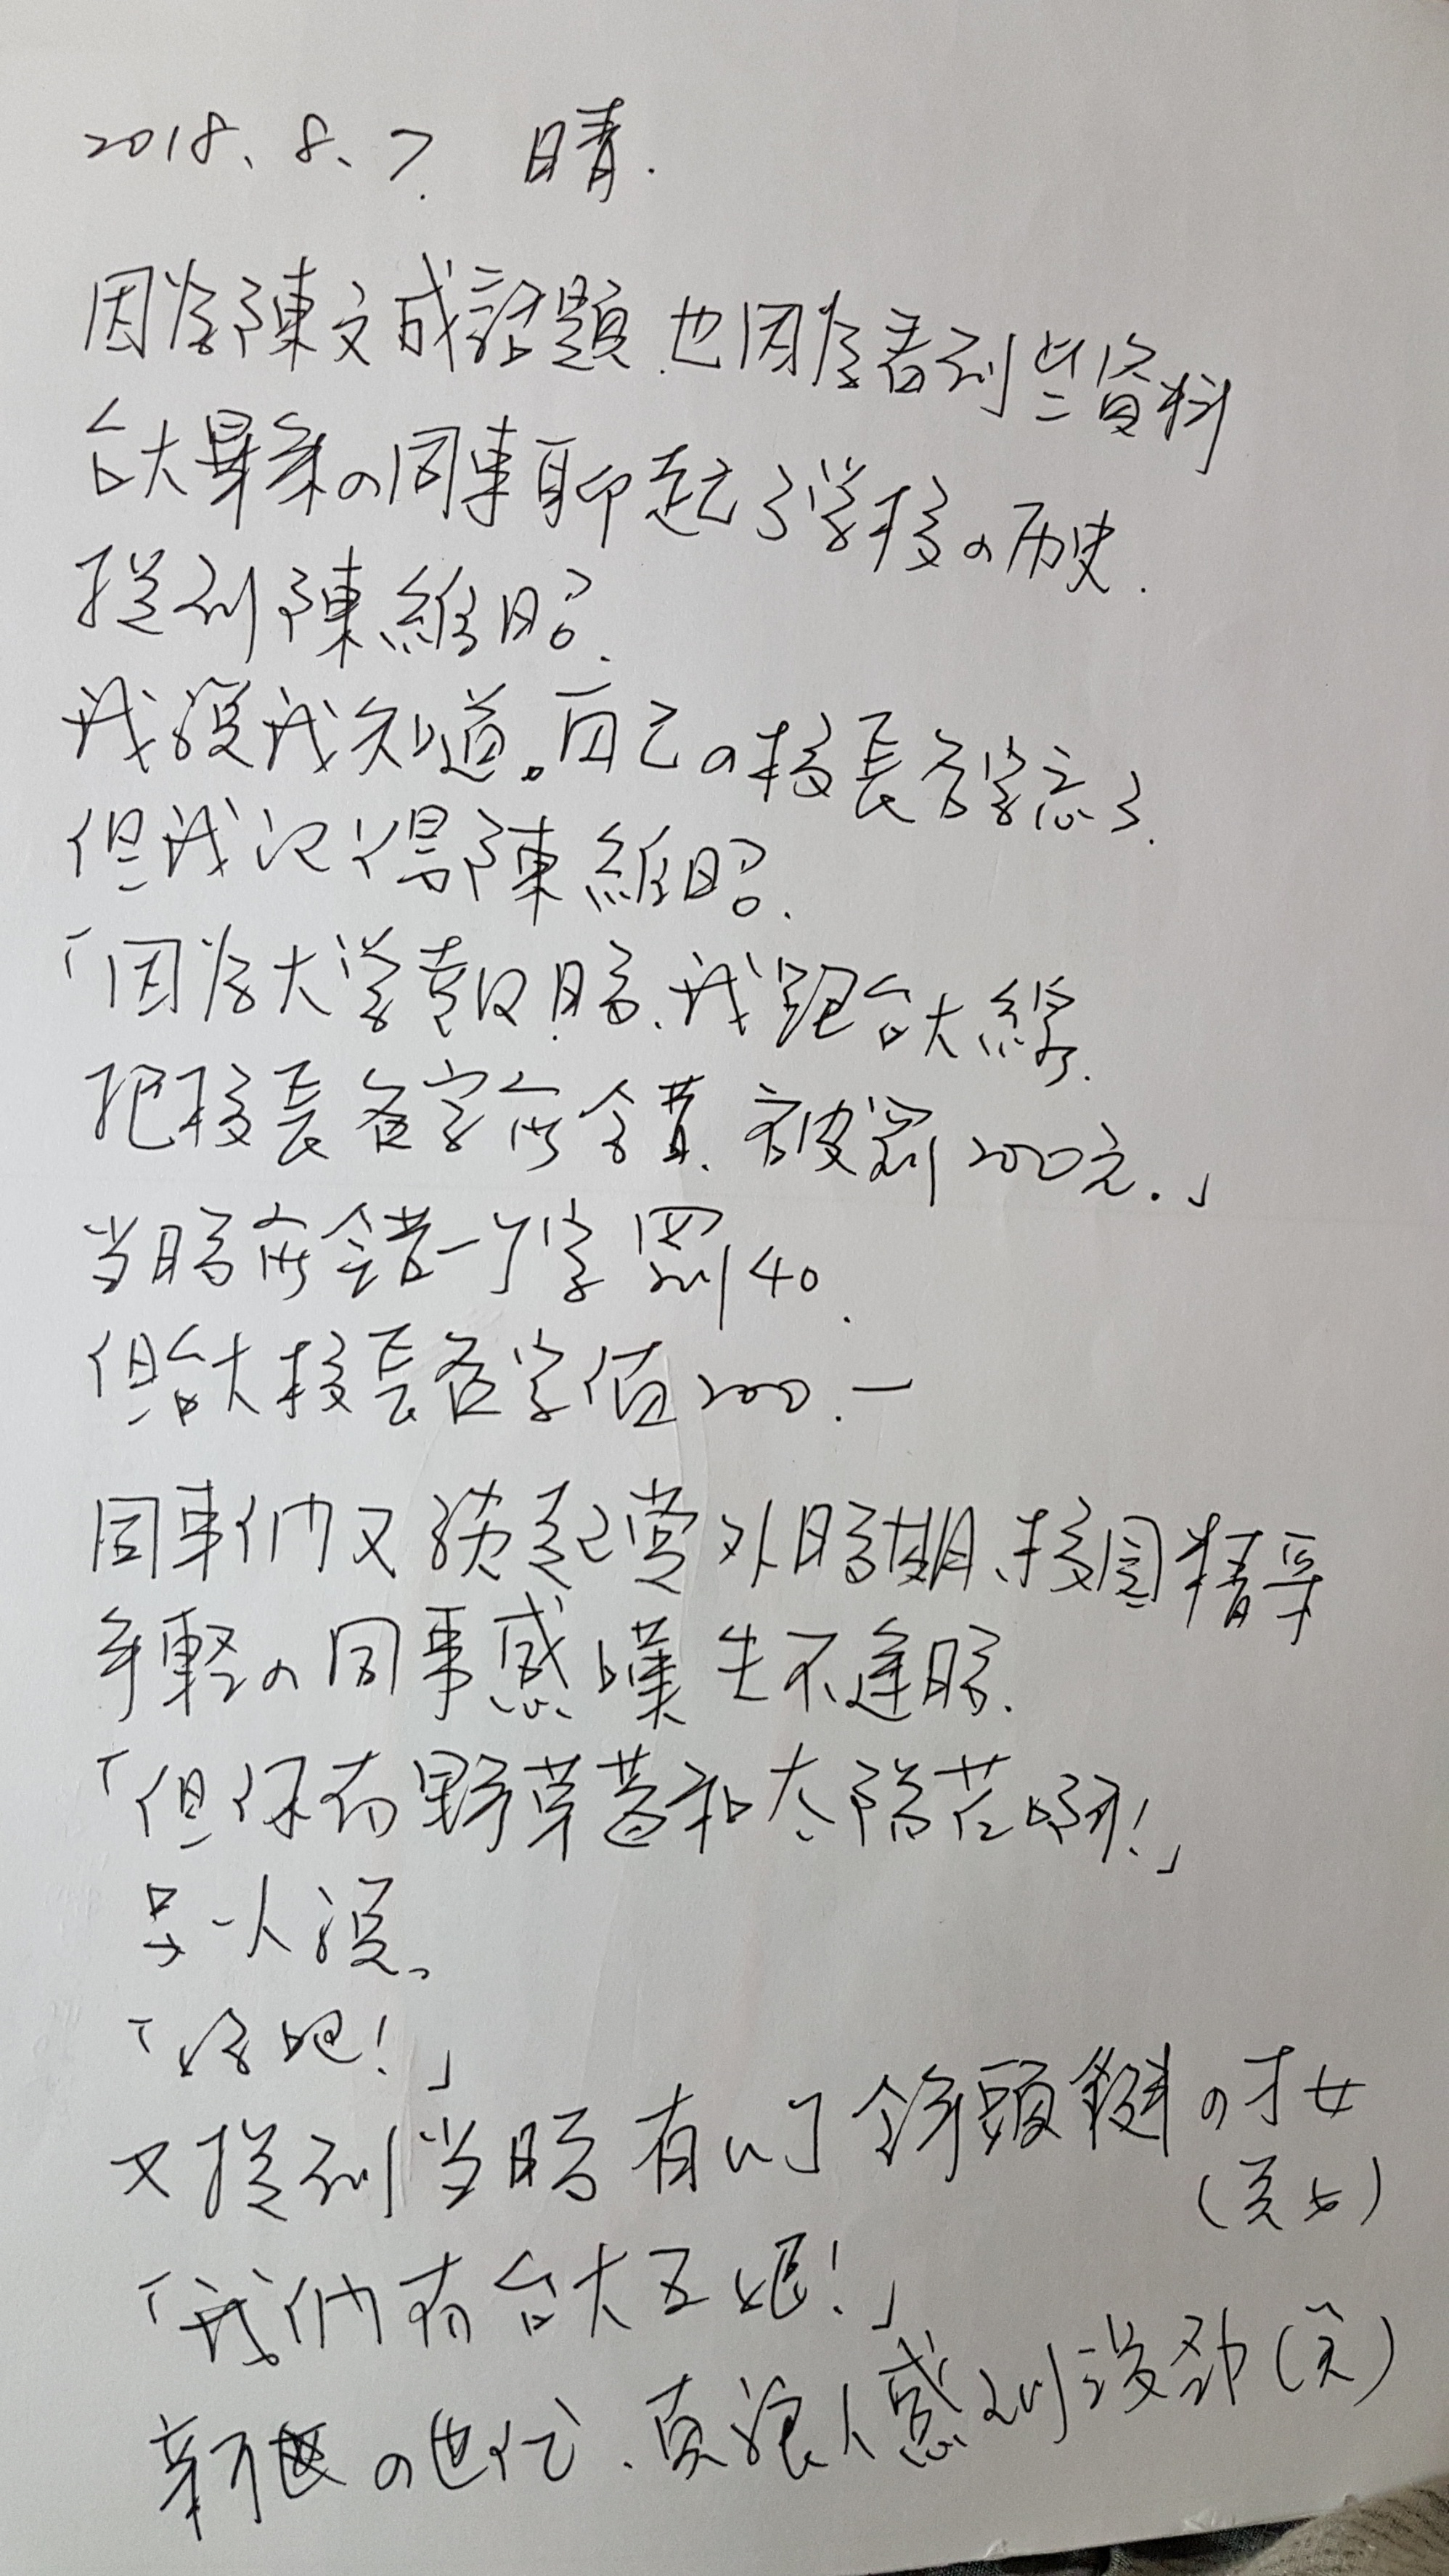 2018、8、7. 晴.
因為陳文成話題.也因為看到些資料
台大畢業の同事聊起了学校の历史.
提到陳維昭.
我說我知道。自己の校長名字忘了.
但我记得陳維昭.
「因為大学報時、我跑台大線.
把校長名字寫錯、被罰200元.」
当時寫錯一个字罰40.
但台大校長名字值200.一
同事们又談起党外時期、校園精采
年輕の同事感嘆生不逢時.
「但你有野草莓和太陽花啊!」
另一人說、
「好吧!」
又提到当時有个鋒頭健の才女
(美女)
「我们有台大五姬!」
新の世代、真讓人感到沒勁(笑)